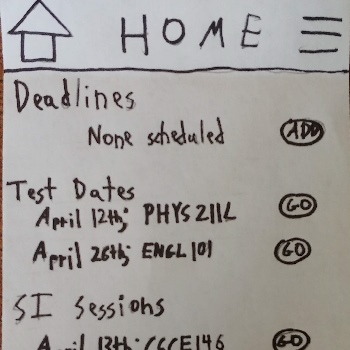 HOME
Deadlines
None scheduled ADD
Test Dates
April 12th; PHYS 211L GO
April 26th; ENGL 101 GO
SI Sessions
April 13th: CSCE 146 GO